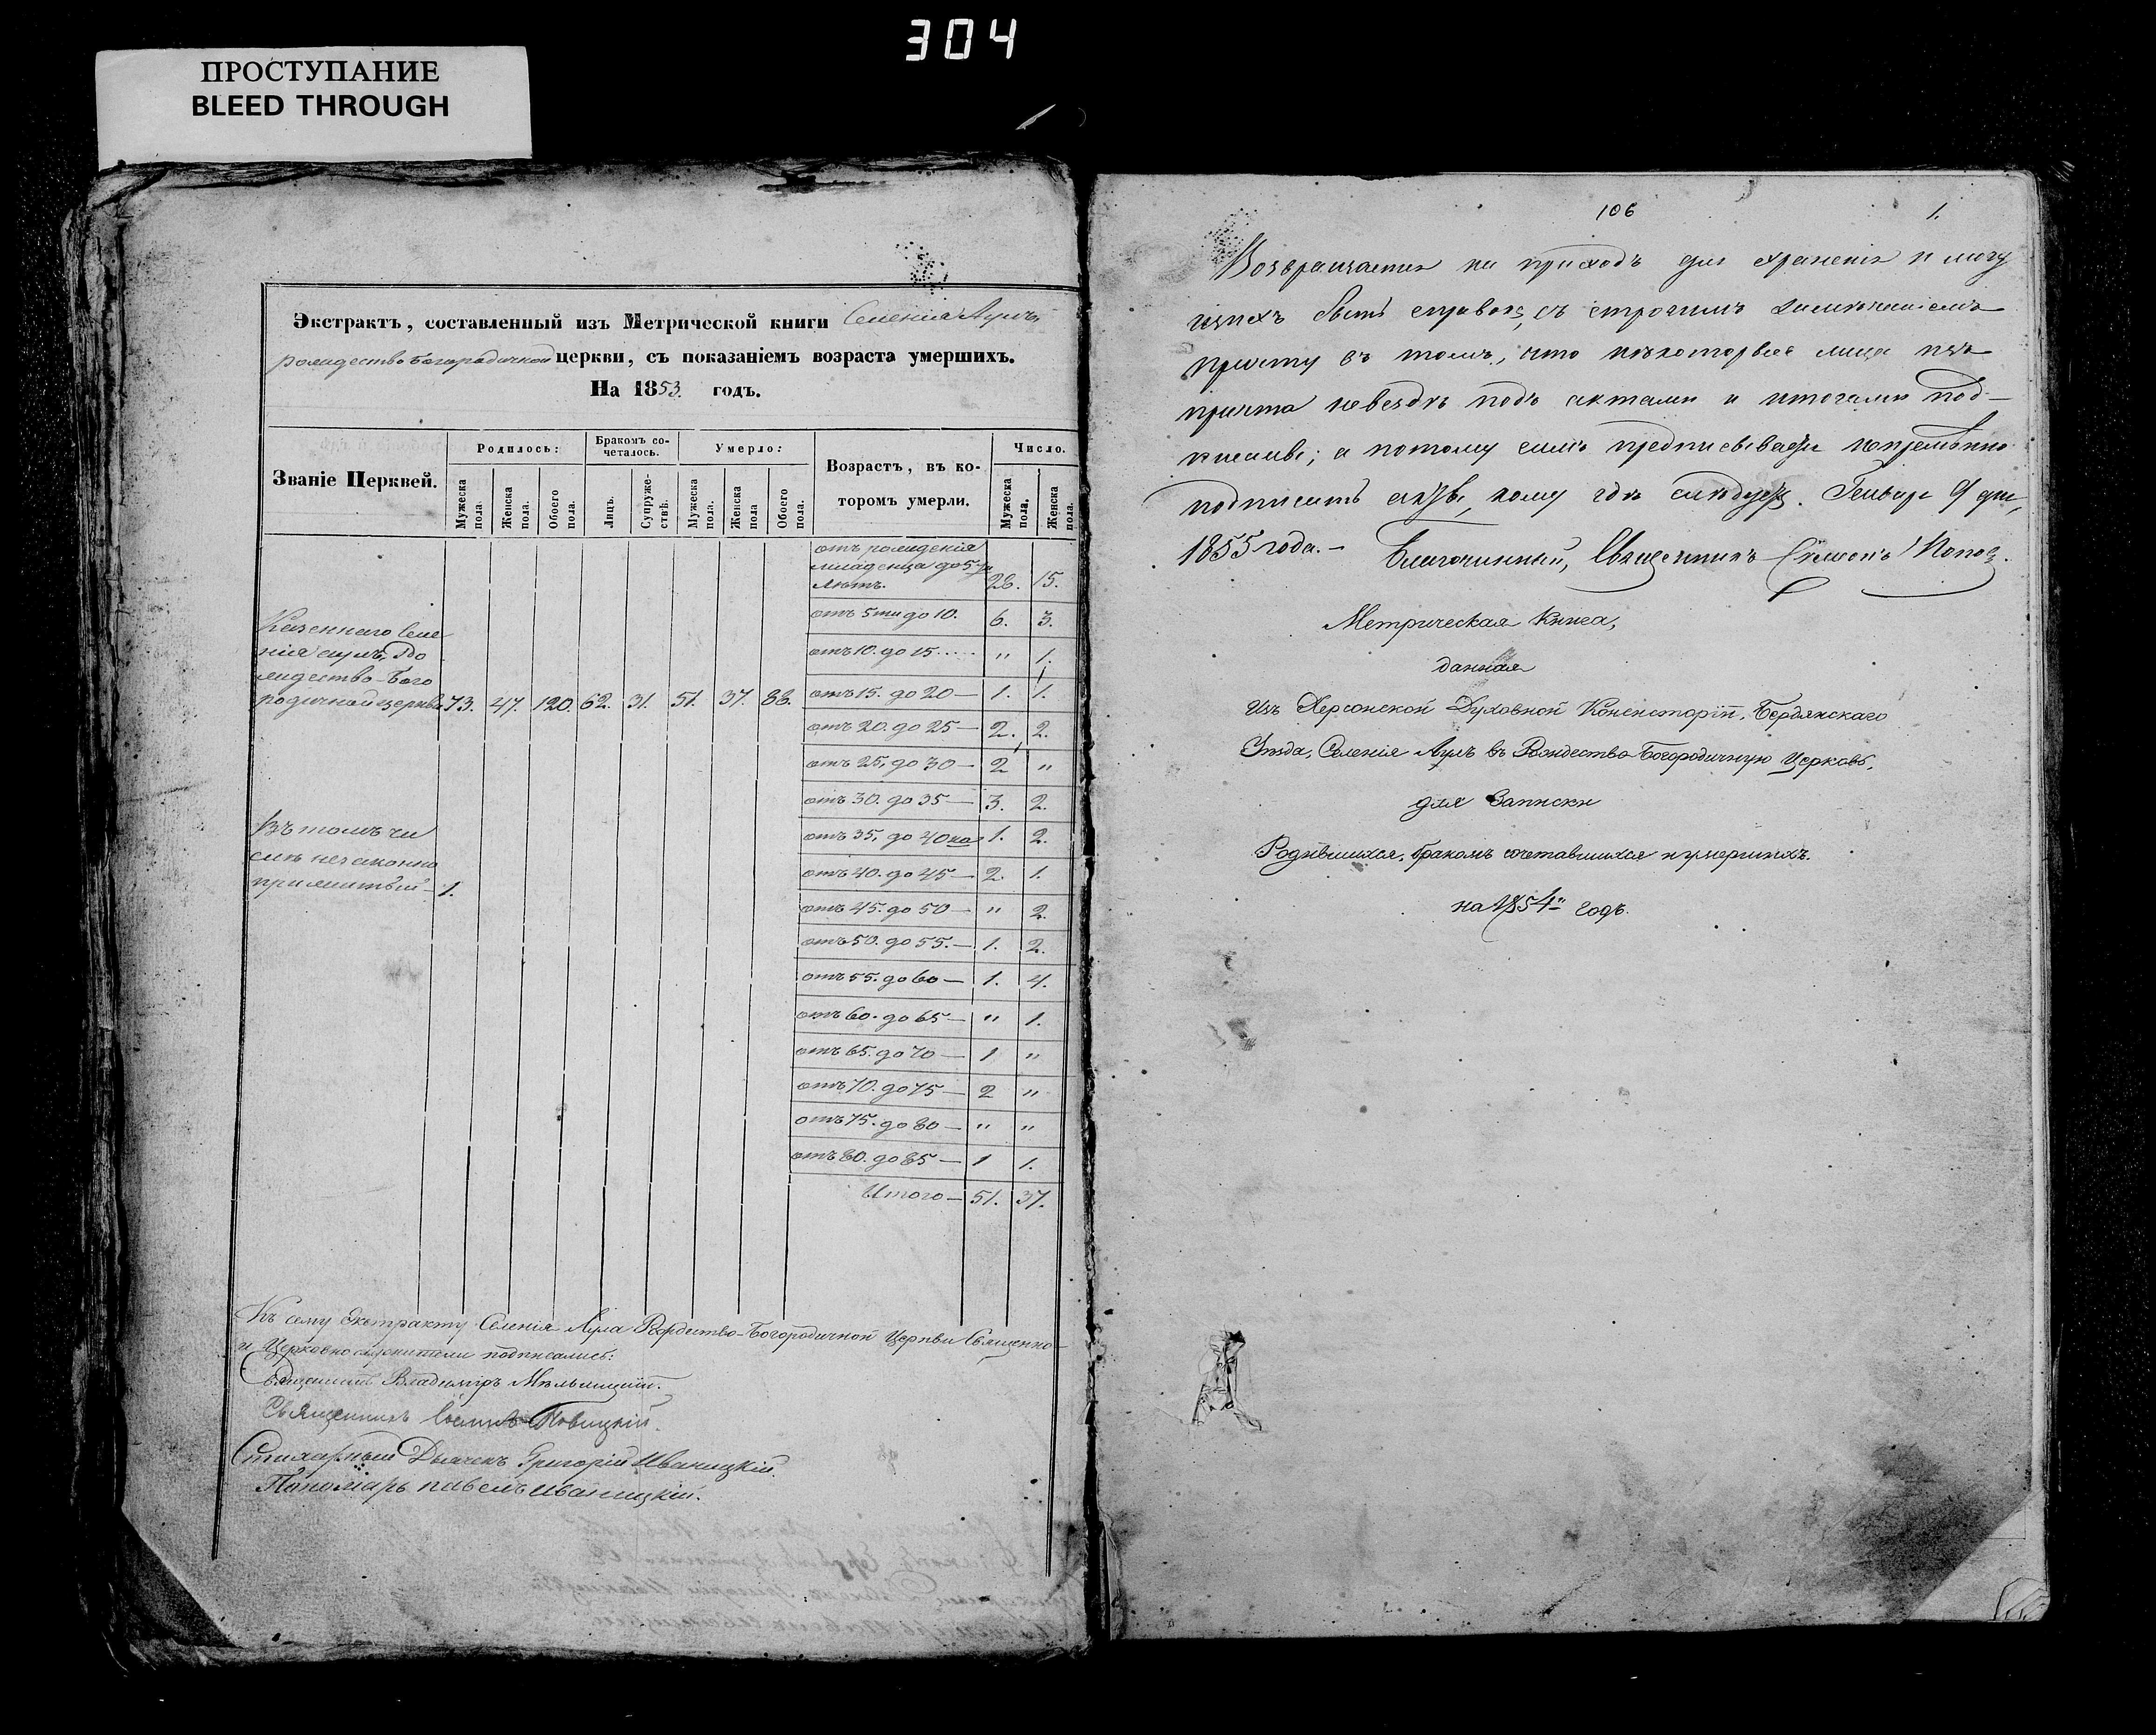 304
ПРОСТУПАНИЕ
BLEED THROUGH
Экстрактъ, составленный изъ Метрической книги Селенія Аулъ
рождество богородичной церкви, съ показаніемъ возраста умершихъ.
На 1853. годъ.
Званіе Церквей.
Родилось:
Бракомъ со-
четалось.
Умерло:
Возрастъ, въ ко-
торомъ умерли.
Число.
Мужеска пола.
Женска пола.
Обоего пола.
Лицъ.
Супруже-
ствъ.
Мужеска пола.
Женска пола
Обоего пола.
Мужеска пола.
Женска пола.
Казеннаго Селе
нія аулъ, Ро
ждество-Бого
родичной церкви 73. 47. 120. 62. 31. 51. 37. 88.
Въ томъ чи
слѣ незаконно
прижитый - 1.
отъ рожденія
младенца до 5ти
лѣтъ. 28. 15.
отъ 5ти до 10. 6. 3.
отъ 10. до 15..... " 1.
отъ 15. до 20 — 1. 1.
отъ 20. до 25 — 2. 2.
отъ 25. до 30 — 2 "
отъ 30. до 35 — 3. 2.
отъ 35. до 40 1. 2.
отъ 40. до 45 — 2. 1.
отъ 45. до 50 — " 2.
отъ 50. до 55. — 1. 2.
отъ 55. до 60 — 1. 4.
отъ 60. до 65 — " 1.
отъ 65. до 70 — 1 "
отъ 70. до 75 — 2 "
отъ 75. до 80 — " "
отъ 80. до 85 — 1 1.
Итого — 51. 37.
Къ сему Экстракту Селенія Аула Рождество-Богородичной Церкви Священно-
и Церковно служители подписались:
Священникъ Владимиръ
Священникъ
Стихарный Дьячекъ Григорій Иваницкій.
Пономарь павелъ иваницкій.
106 1.
Возвращается на приходъ для храненія и могу
щихъ быть справокъ, съ строгимъ замѣчаніемъ
причту въ томъ, что нѣкоторыя лица изъ
причта невездѣ подъ актами и итогами под-
писаны; а потому симъ предписываю непремѣнно
подписать акты, кому гдѣ слѣдуетъ. Генваря 9 дня,
1855 года. — Благочинный, Священникъ Симеонъ Поповъ.
Метрическая Книга,
данная
Изъ Херсонской Духовной Консисторіи, Бердянскаго
Уѣзда, Селенія Аулъ въ Рождество-Богородичную Церковь,
для Записки
Родившихся, бракомъ сочетавшихся и умершихъ.
на 1854" годъ.